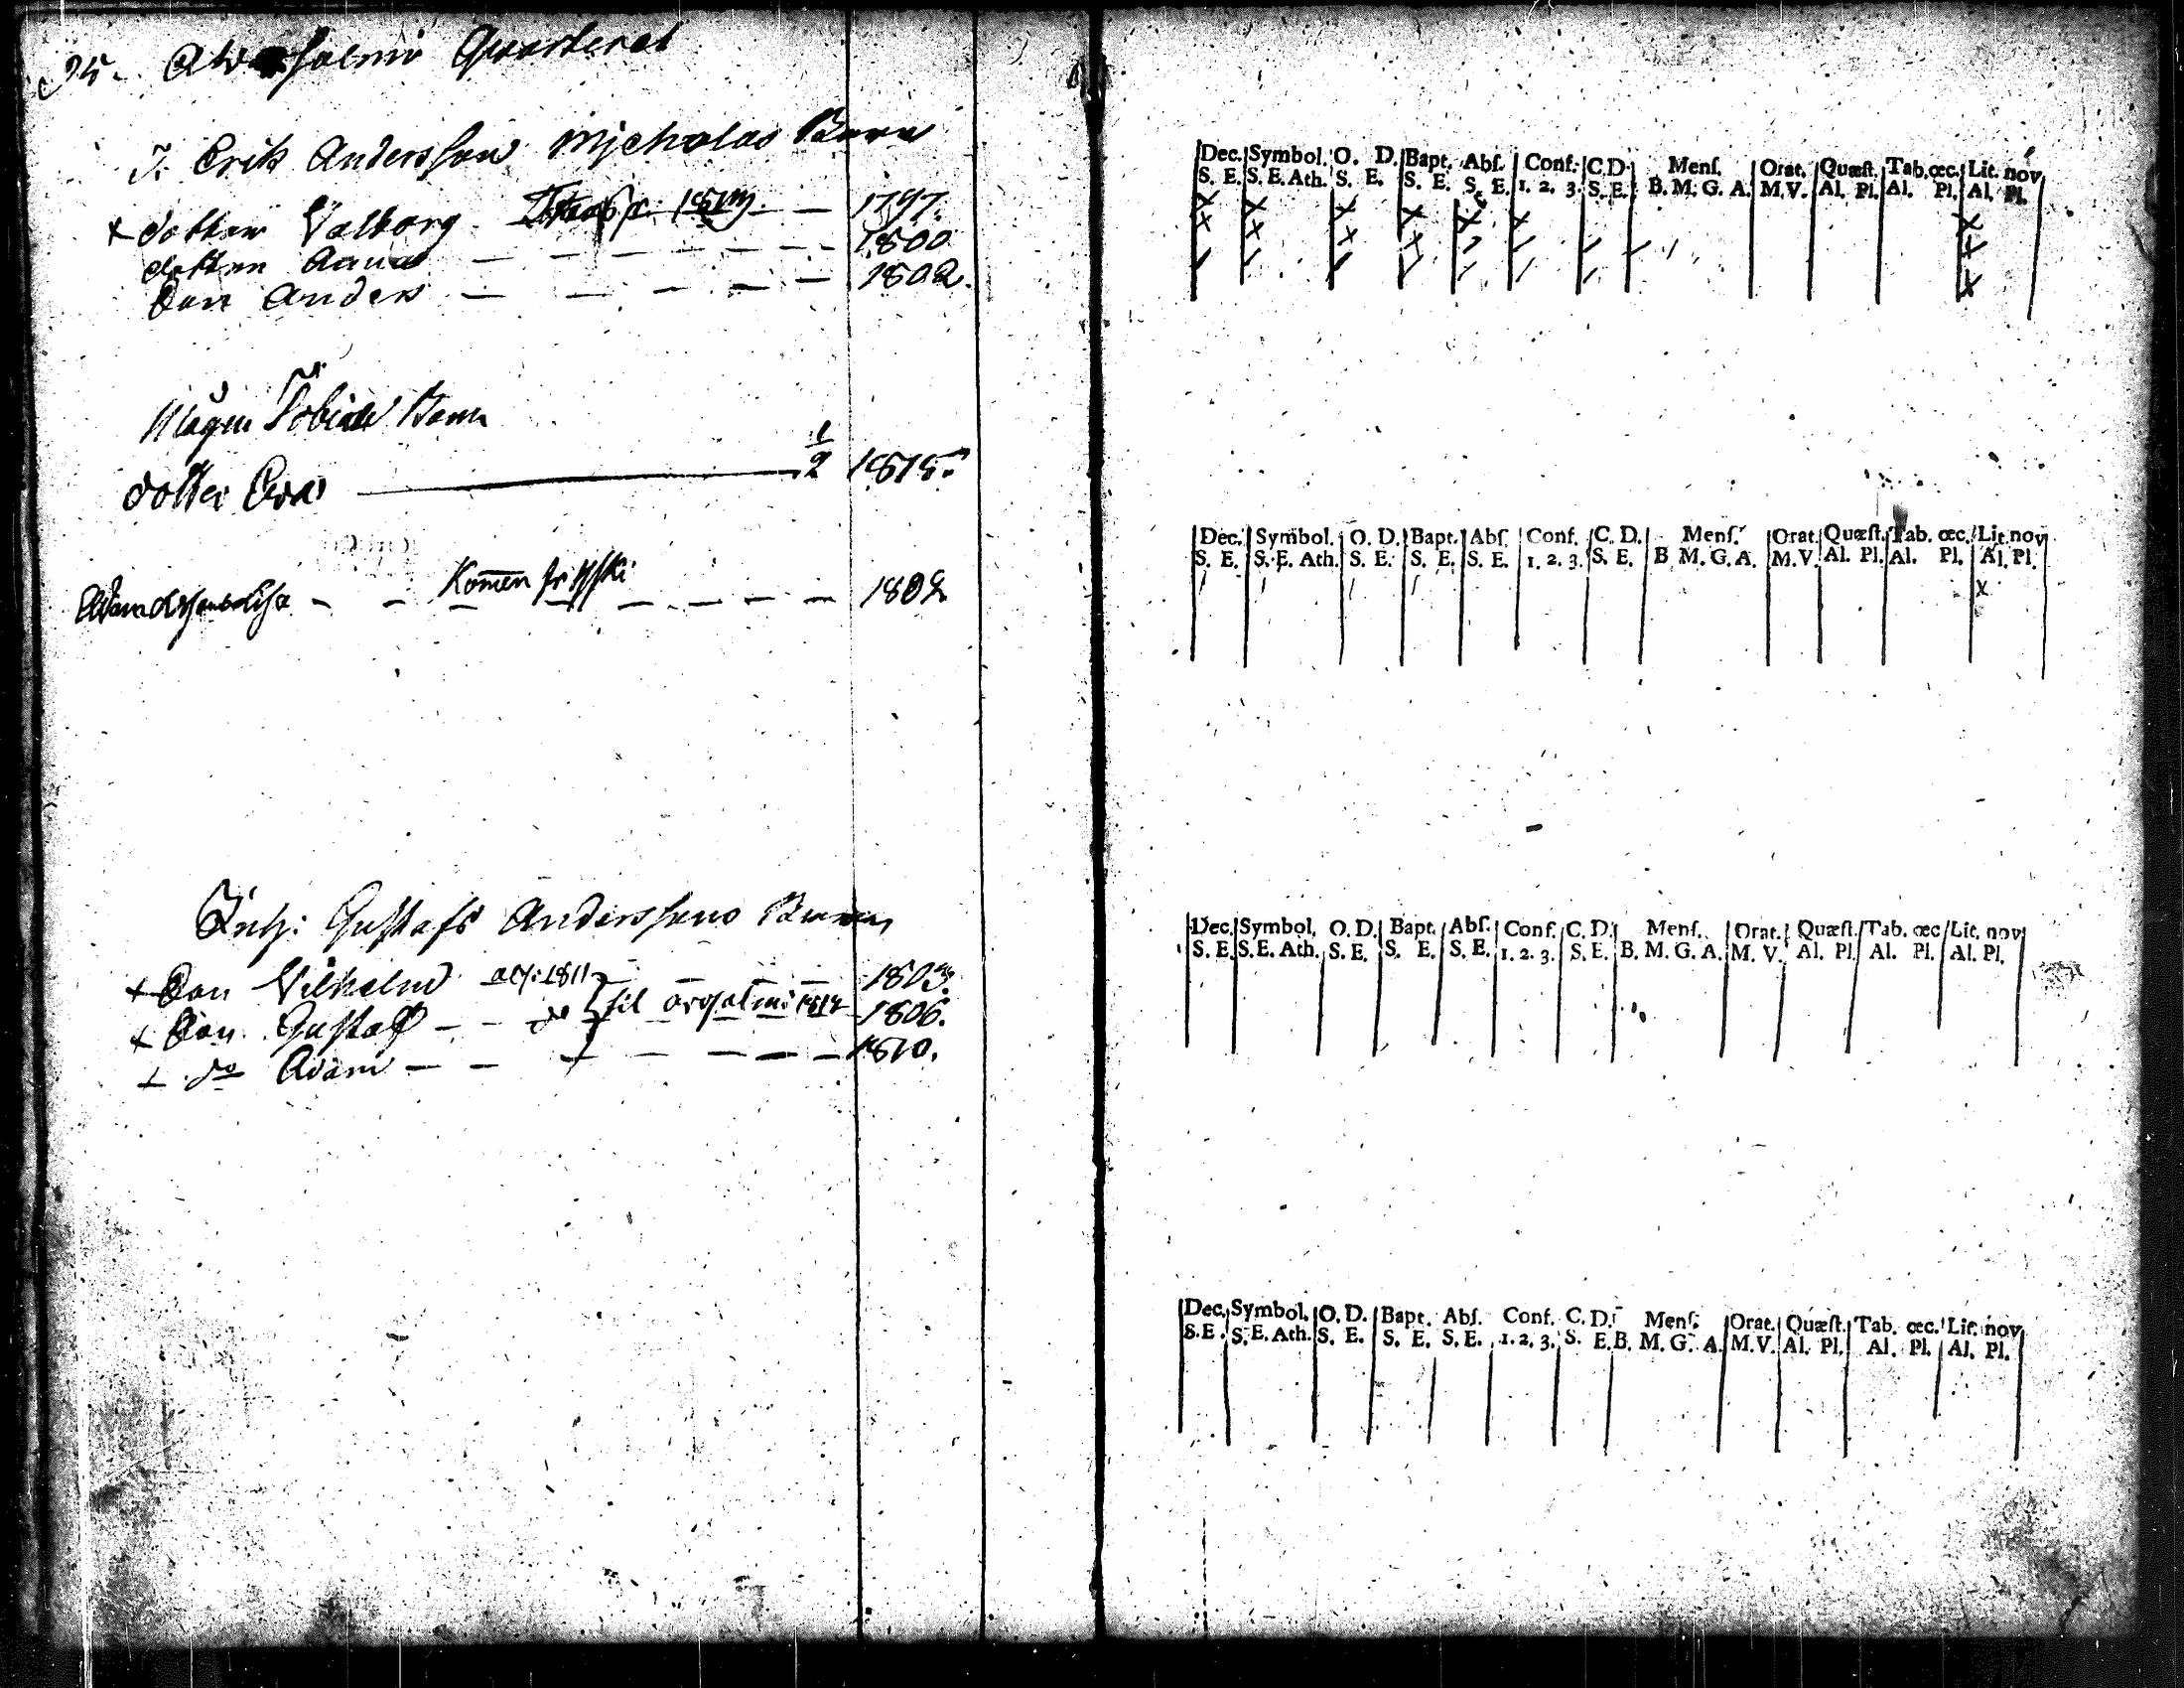 Quarteret
I. Erik Andersson Michelas Barn
+ dotter Valborg 1797.
dotter Anna — — — — — — 1800
Son Anders — — — — — 1802.
Mågen Tobias Barn
dotter Eva ——— 1/2 1815.
Komen fr — — — — — — 1802
Inh: Gustafs Anderssons Barn
+ Son Vilhelm 1811 — — — 1803.
+ Son Gustaf — — do til 1812 1806.
+ do Adam — — — — — — 1810.
Dec. Symbol. O. D. Bapt. Abſ. Conf. C. D. Menſ. Orat. Quæſt. Tab. œc. Lit. nov
S. E. S. E. Ath. S. E. S. E. S. E. 1. 2. 3. S. E. B. M. G. A. M. V. Al. Pl. Al. Pl. Al. Pl.
Dec. Symbol. O. D. Bapt. Abſ. Conf. C. D. Menſ. Orat. Quæſt. Tab. œc. Lit. nov
S. E. S. E. Ath. S. E. S. E. S. E. 1. 2. 3. S. E. B M. G. A. M. V. Al. Pl. Al. Pl. Al. Pl.
Dec. Symbol. O. D. Bapt. Abſ. Conf. C. D. Menſ. Orat. Quæſt. Tab. œc Lit. nov
S. E. S. E. Ath. S. E. S. E. S. E. 1. 2. 3. S. E. B. M. G. A. M. V. Al. Pl. Al. Pl. Al. Pl.
Dec. Symbol. O. D. Bapt. Abſ. Conf. C. D. Menſ. Orat. Quæſt. Tab. œc. Lit. nov
S. E. S. E. Ath. S. E. S. E. S. E. 1. 2. 3. S. E. B. M. G. A. M. V. Al. Pl. Al. Pl. Al. Pl.